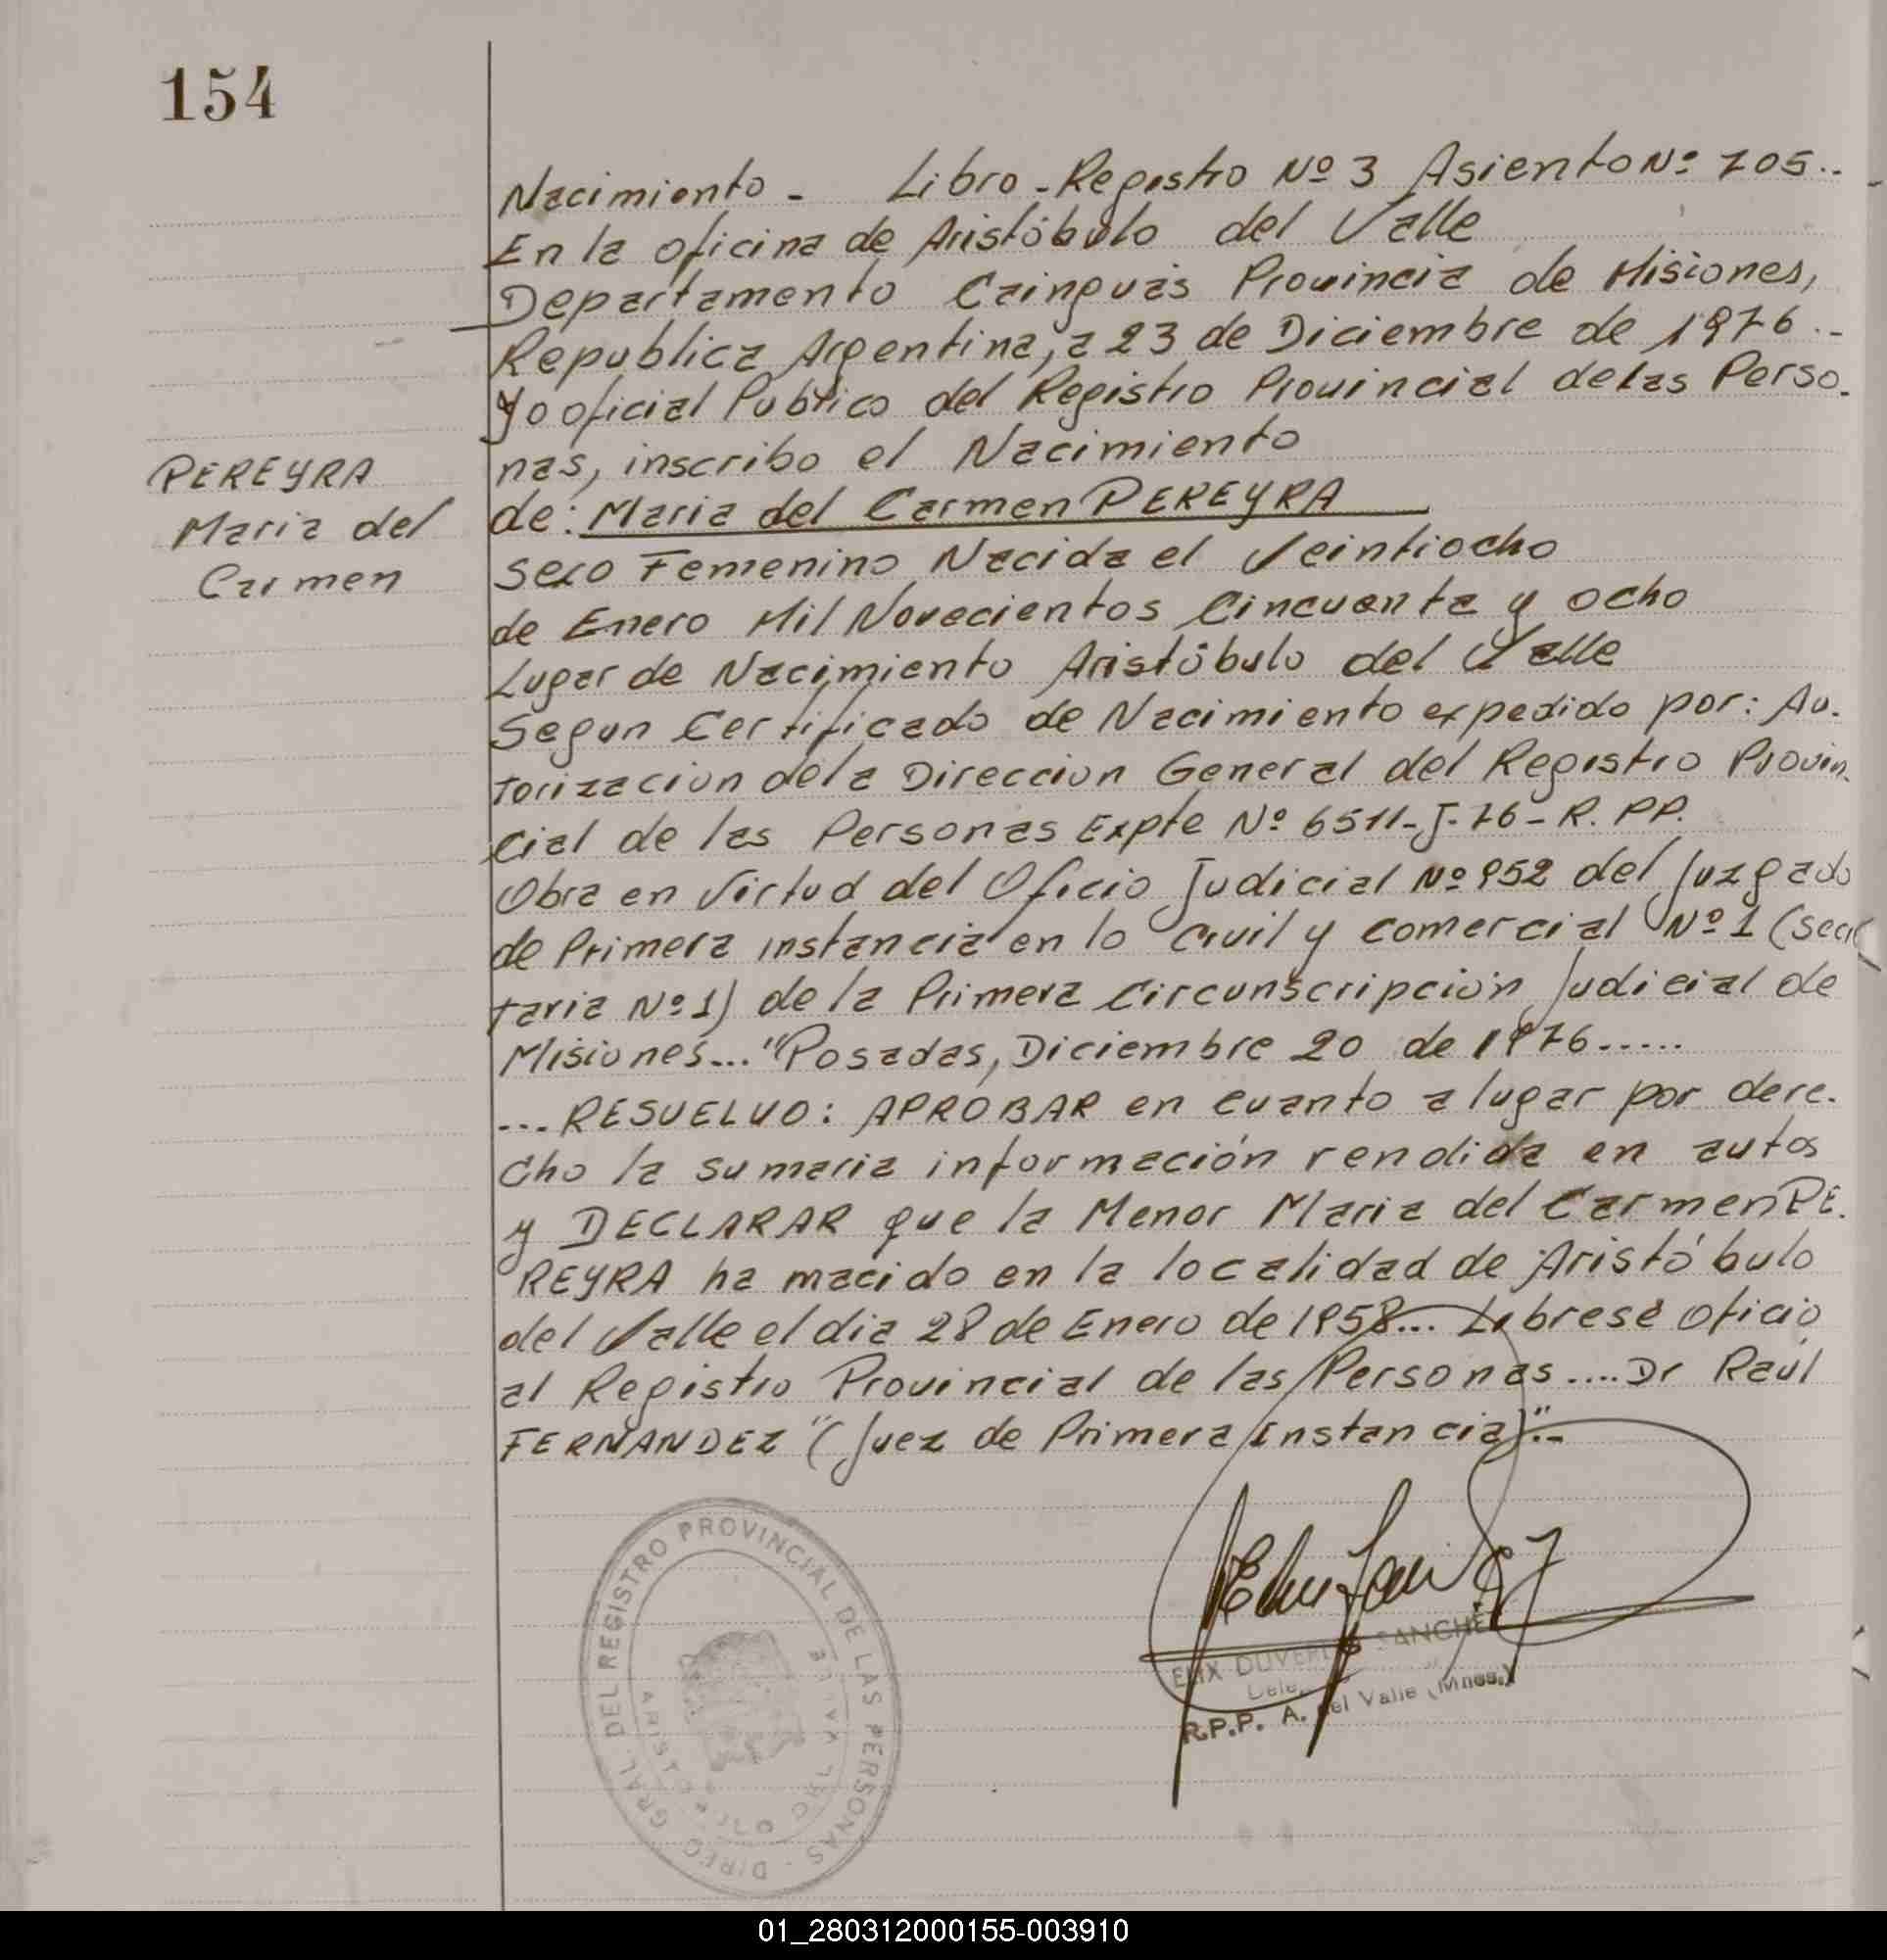 154
Nacimiento - Libro-Registro Nº 3 Asiento Nº 705..
En la oficina de Aristóbulo del Valle
Departamento Cainguás Provincia de Misiones,
Republica Argentina, a 23 de Diciembre de 1976.-
Yo oficial Publico del Registro Provincial de las Perso-
nas, inscribo el Nacimiento
PEREYRA
Maria del
Carmen
de: Maria del Carmen PEREYRA
Sexo Femenino Nacida el Veintiocho
de Enero Mil Novecientos Cincuenta y ocho
Lugar de Nacimiento Aristóbulo del Valle
Segun Certificado de Nacimiento expedido por: Au-
torizacion de la Direccion General del Registro Provin-
cial de las Personas Expte Nº 6511-J-76-R. PP.
Obra en Virtud del Oficio Judicial Nº 952 del Juzgado
de Primera instancia en lo Civil y comercial Nº 1 (Secre
taria Nº 1) de la Primera Circunscripción Judicial de
Misiones... "Posadas, Diciembre 20 de 1976.....
... RESUELVO: APROBAR en cuanto a lugar por dere-
cho la sumaria información rendida en autos
y DECLARAR que la Menor Maria del Carmen PE-
REYRA ha nacido en la localidad de Aristóbulo
del Valle el dia 28 de Enero de 1958... Librese oficio
al Registro Provincial de las Personas.... Dr Raúl
FERNANDEZ" (Juez de Primera Instancia)".-
DIREC. GRAL. DEL REGISTRO PROVINCIAL DE LAS PERSONAS -
ARISTOBULO DEL VALLE
SANCHE
R.P.P. A. del Valle (Mnes.)
01_280312000155-003910